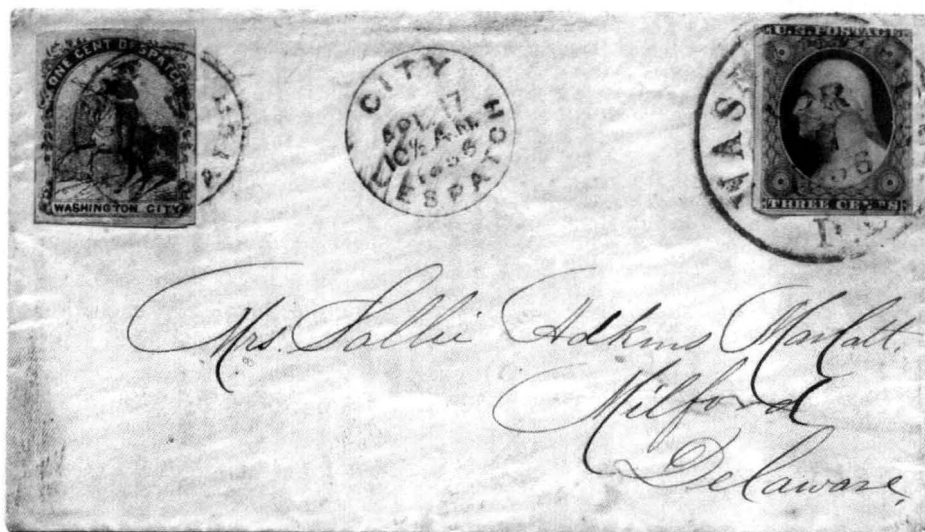 ONE CENT DESPATCH
WASHINGTON CITY
CITY
DESPATCH
APL 17
10½ A.M.
1856
WASH
56
D.C
U.S. POSTAGE
THREE CENTS
Mrs. Sallie Adkins Marlatt.
Milford
Delaware,